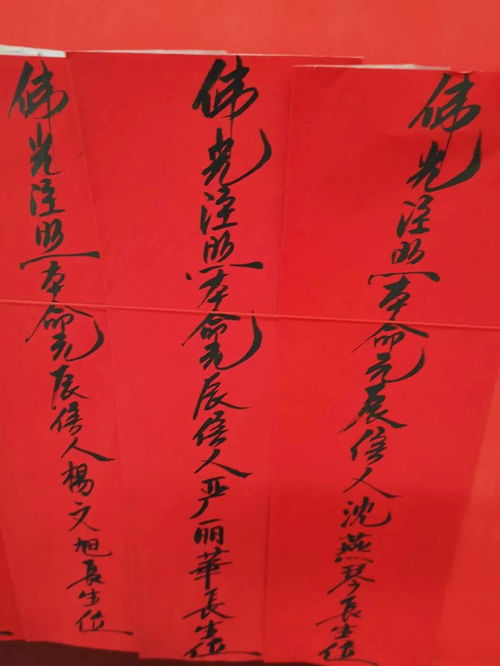 佛光注照本命元辰信人沈燕琴長生位
佛光注照本命元辰信人严丽華長生位
佛光注照本命元辰信人楊文旭長生位